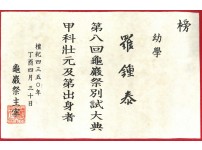 榜
幼學
羅鍾泰
第八回龜巖祭別試大典
甲科壯元及第出身者
檀紀四三五〇年
丁酉四月三十日
龜巖祭主